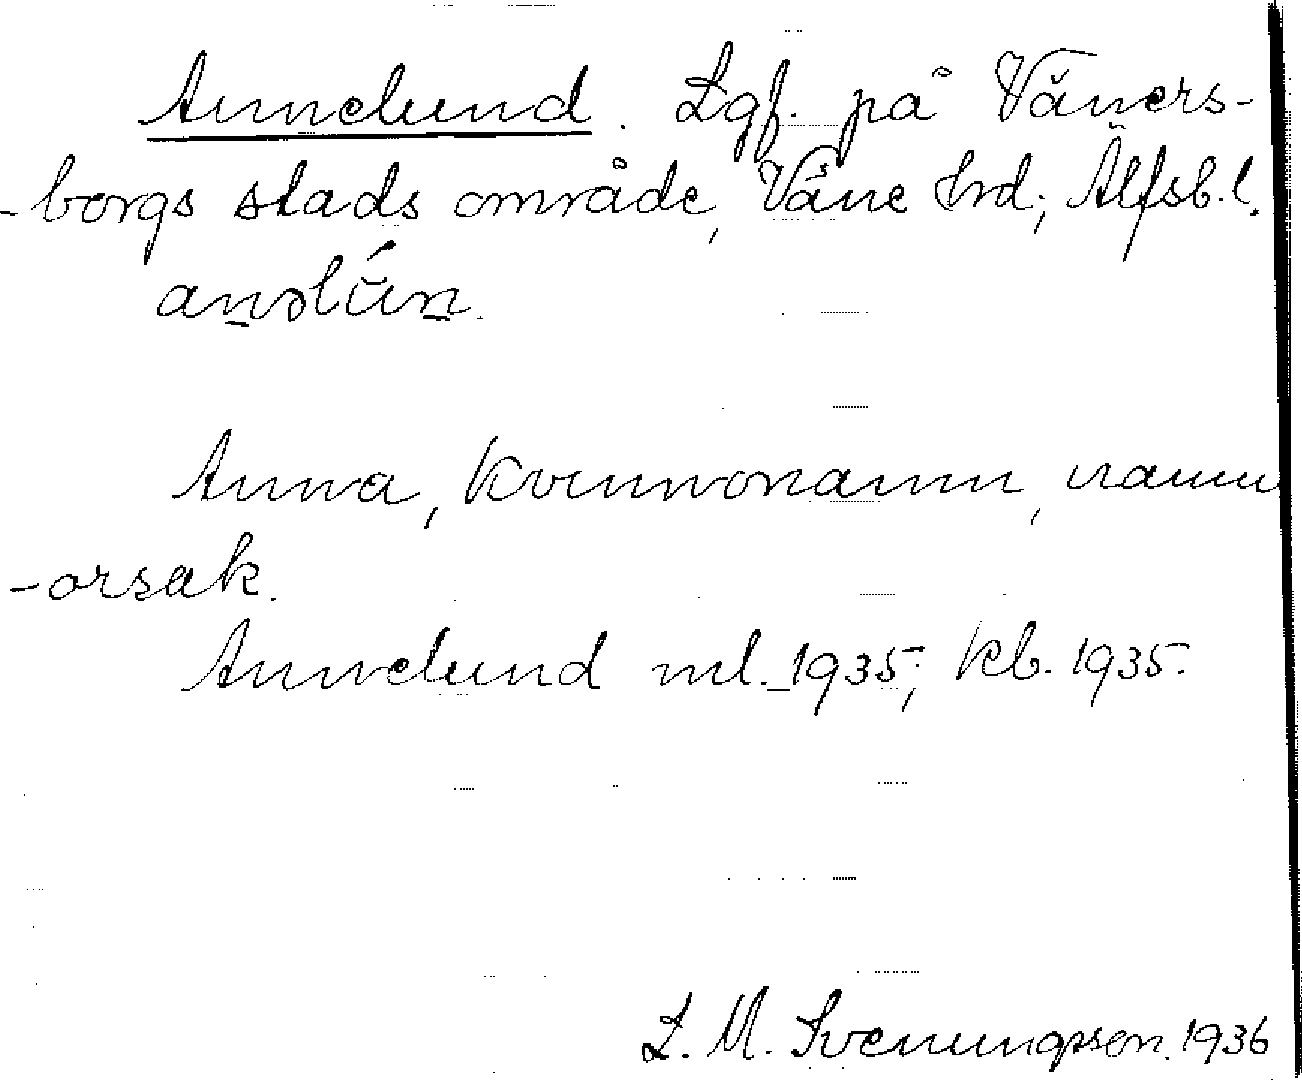 Annelund. Lgf. på Väners-
-borgs stads område, Väne hrd; Älfsb. l.
anəlún.
Anna, kvinnonamn, namn
-orsak.
Annelund ml. 1935; kb. 1935.
L. M. Svenungsson. 1936